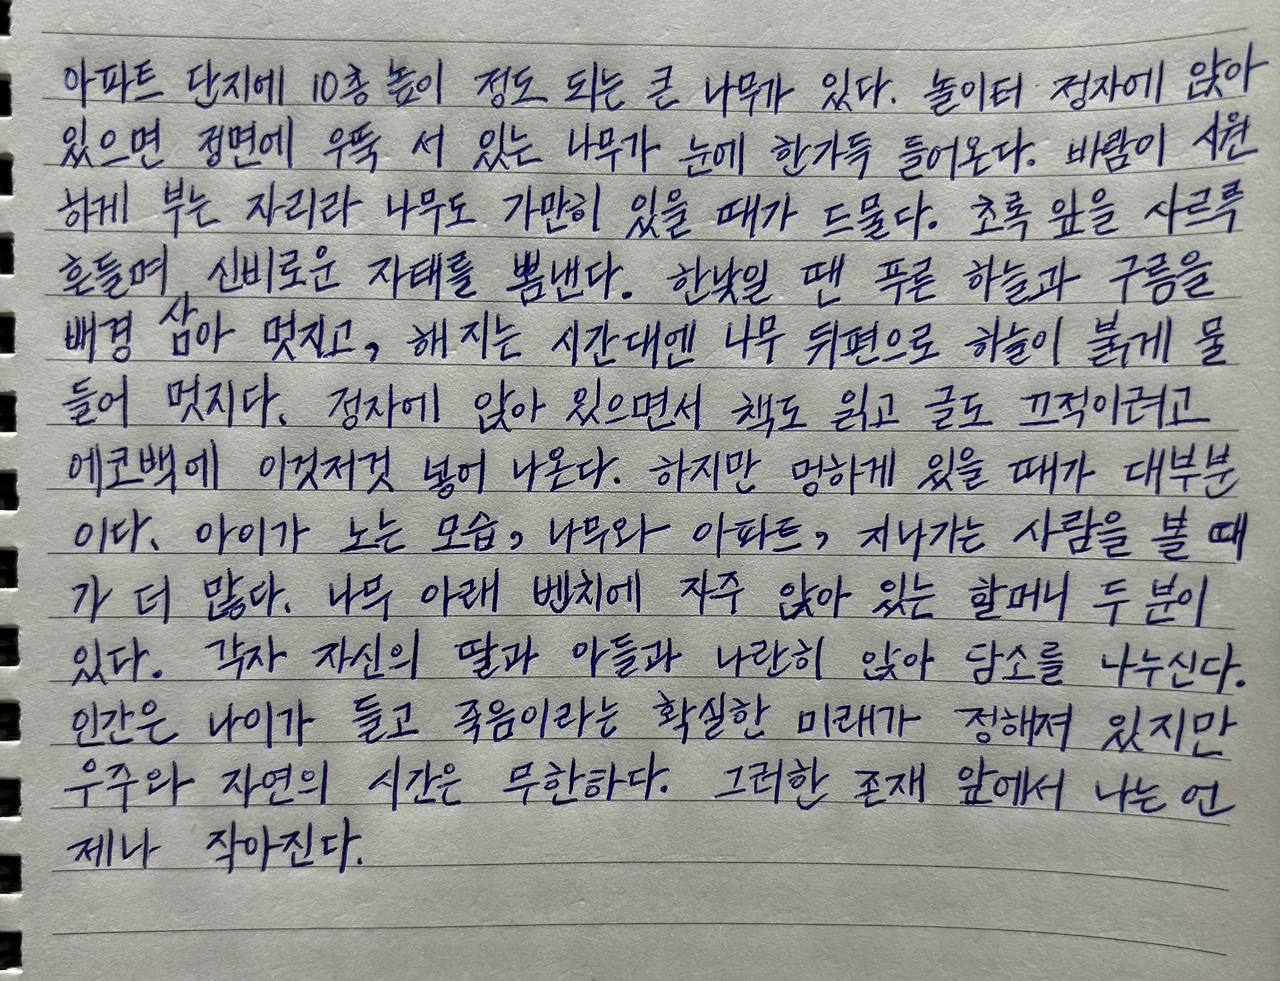 아파트 단지에 10층 높이 정도 되는 큰 나무가 있다. 놀이터 정자에 앉아
있으면 정면에 우뚝 서 있는 나무가 눈에 한가득 들어온다. 바람이 시원
하게 부는 자리라 나무도 가만히 있을 때가 드물다. 초록 잎을 사르륵
흔들며 신비로운 자태를 뽐낸다. 한낮일 땐 푸른 하늘과 구름을
배경 삼아 멋지고, 해 지는 시간대엔 나무 뒤편으로 하늘이 붉게 물
들어 멋지다. 정자에 앉아 있으면서 책도 읽고 글도 끄적이려고
에코백에 이것저것 넣어 나온다. 하지만 멍하게 있을 때가 대부분
이다. 아이가 노는 모습, 나무와 아파트, 지나가는 사람을 볼 때
가 더 많다. 나무 아래 벤치에 자주 앉아 있는 할머니 두 분이
있다. 각자 자신의 딸과 아들과 나란히 앉아 담소를 나누신다.
인간은 나이가 들고 죽음이라는 확실한 미래가 정해져 있지만
우주와 자연의 시간은 무한하다. 그러한 존재 앞에서 나는 언
제나 작아진다.